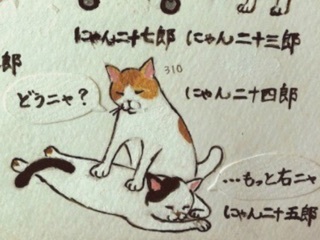 にゃん二十七郎 にゃん二十三郎
郎
310
どうニャ？
にゃん二十四郎
…もっと右ニャ
にゃん二十五郎